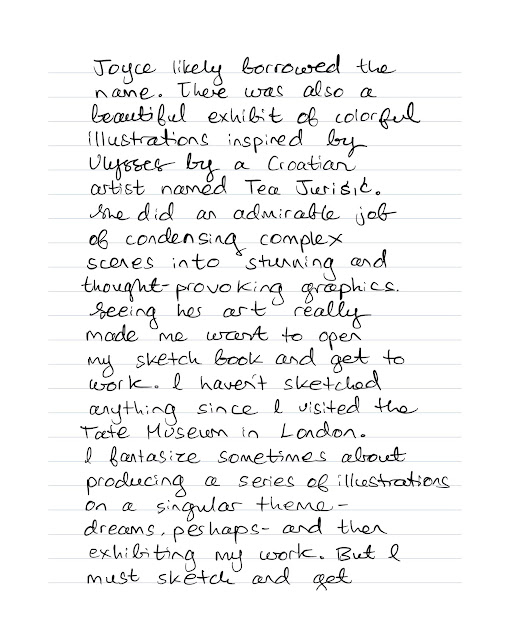 Joyce likely borrowed the
name. There was also a
beautiful exhibit of colorful
illustrations inspired by
Ulysses by a Croatian
artist named Tea Jurišić.
She did an admirable job
of condensing complex
scenes into stunning and
thought-provoking graphics.
Seeing her art really
made me want to open
my sketch book and get to
work. I haven't sketched
anything since I visited the
Tate Museum in London.
I fantasize sometimes about
producing a series of illustrations
on a singular theme-
dreams, perhaps- and then
exhibiting my work. But I
must sketch and get